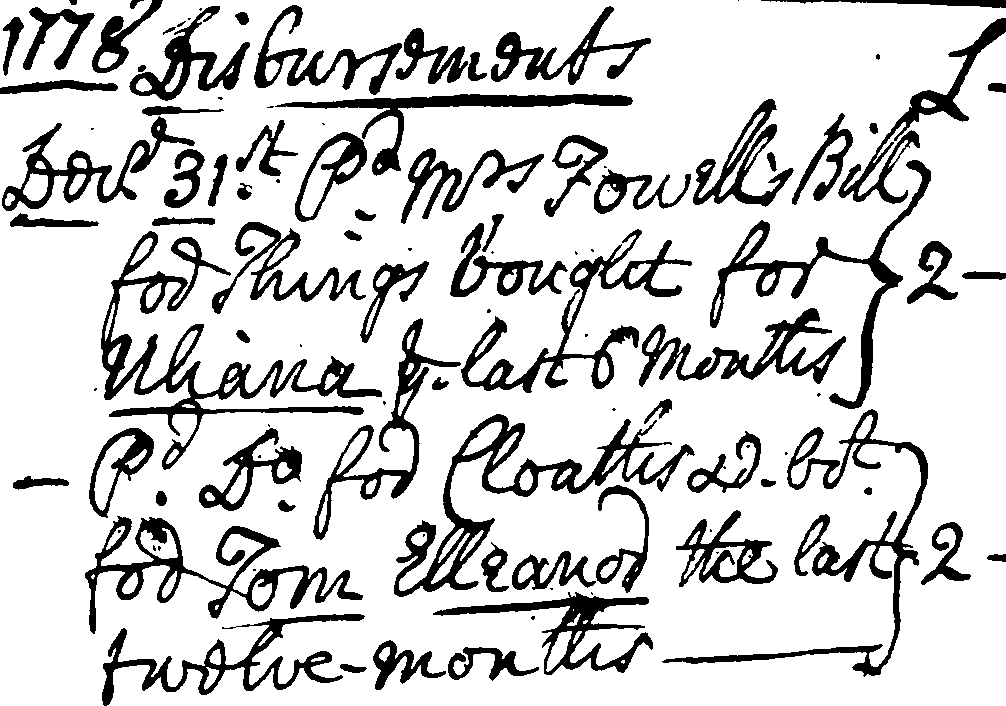 1778 Disbursements L -
Decr 31st Pd Mrs Fowell's Bill
for Things bought for 2 -
Uliana ye last 6 Months
- Pd Do for Cloaths &c. bot.
for Tom Elleanor the last 2 -
twelve-months